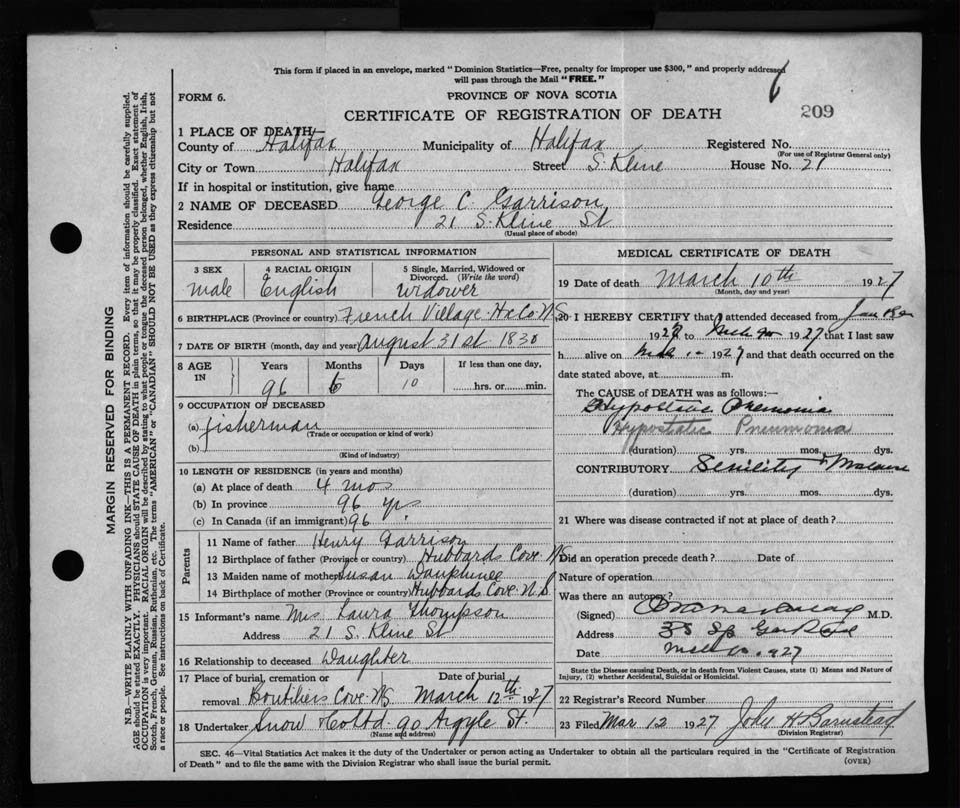 This form if placed in an envelope, marked "Dominion Statistics—Free, penalty for improper use $300," and properly addressed
will pass through the Mail "FREE."
FORM 6.
PROVINCE OF NOVA SCOTIA
CERTIFICATE OF REGISTRATION OF DEATH
209
1 PLACE OF DEATH—
County of Halifax Municipality of Halifax Registered No.
(For use of Registrar General only)
City or Town Halifax Street S. Kline House No. 21
If in hospital or institution, give name
2 NAME OF DECEASED George C. Garrison
Residence 21 S. Kline St
(Usual place of abode)
PERSONAL AND STATISTICAL INFORMATION
3 SEX
male
4 RACIAL ORIGIN
English
5 Single, Married, Widowed or Divorced. (Write the word)
Widower
6 BIRTHPLACE (Province or country) French Village Hx Co N.S.
7 DATE OF BIRTH (month, day and year) August 31st 1830
8 AGE IN
Years Months Days If less than one day,
96 6 10 hrs. or min.
9 OCCUPATION OF DECEASED
(a) fisherman
(Trade or occupation or kind of work)
(b)
(Kind of industry)
10 LENGTH OF RESIDENCE (in years and months)
(a) At place of death 4 mos
(b) In province 96 yrs
(c) In Canada (if an immigrant) 96 "
Parents
11 Name of father Henry Garrison
12 Birthplace of father (Province or country) Hubbards Cove N.S.
13 Maiden name of mother Susan Dauphinee
14 Birthplace of mother (Province or country) Hubbards Cove N.S.
15 Informant's name Mrs Laura Thompson
Address 21 S. Kline St
16 Relationship to deceased Daughter
17 Place of burial, cremation or Date of burial
removal Boutiliers Cove N.S. March 12th 1927
18 Undertaker Snow & Co Ltd. 90 Argyle St.
(Name and address)
MEDICAL CERTIFICATE OF DEATH
19 Date of death March 10th 1927
(Month, day and year)
20 I HEREBY CERTIFY that I attended deceased from Jan
192 to 1927 that I last saw
h alive on 1927 and that death occurred on the
date stated above, at m.
The CAUSE of DEATH was as follows:
Hypostatic Pneumonia
Hypostatic Pneumonia
(duration) yrs. mos. dys.
CONTRIBUTORY Senility +
(duration) yrs. mos. dys.
21 Where was disease contracted if not at place of death?
Did an operation precede death? Date of
Nature of operation
Was there an autopsy?
(Signed) M.D.
Address 38
Date 1927
State the Disease causing Death, or in death from Violent Causes, state (1) Means and Nature of
Injury, (2) whether Accidental, Suicidal or Homicidal.
22 Registrar's Record Number
23 Filed Mar 12 1927 John H Barnstead
(Division Registrar)
SEC. 46—Vital Statistics Act makes it the duty of the Undertaker or person acting as Undertaker to obtain all the particulars required in the "Certificate of Registration
of Death" and to file the same with the Division Registrar who shall issue the burial permit.
(OVER)
MARGIN RESERVED FOR BINDING
N.B.—WRITE PLAINLY WITH UNFADING INK—THIS IS A PERMANENT RECORD. Every item of information should be carefully supplied.
AGE should be stated EXACTLY. PHYSICIANS should STATE CAUSE OF DEATH in plain terms, so that it may be properly classified. Exact statement of
OCCUPATION is very important. RACIAL ORIGIN will be described by stating to what people or tongue the deceased person belonged, whether English, Irish,
Scotch, French, German, Russian, Ruthenian, etc. The terms "AMERICAN" or "CANADIAN" SHOULD NOT BE USED as they express citizenship but not
a race or people. See instructions on back of Certificate.